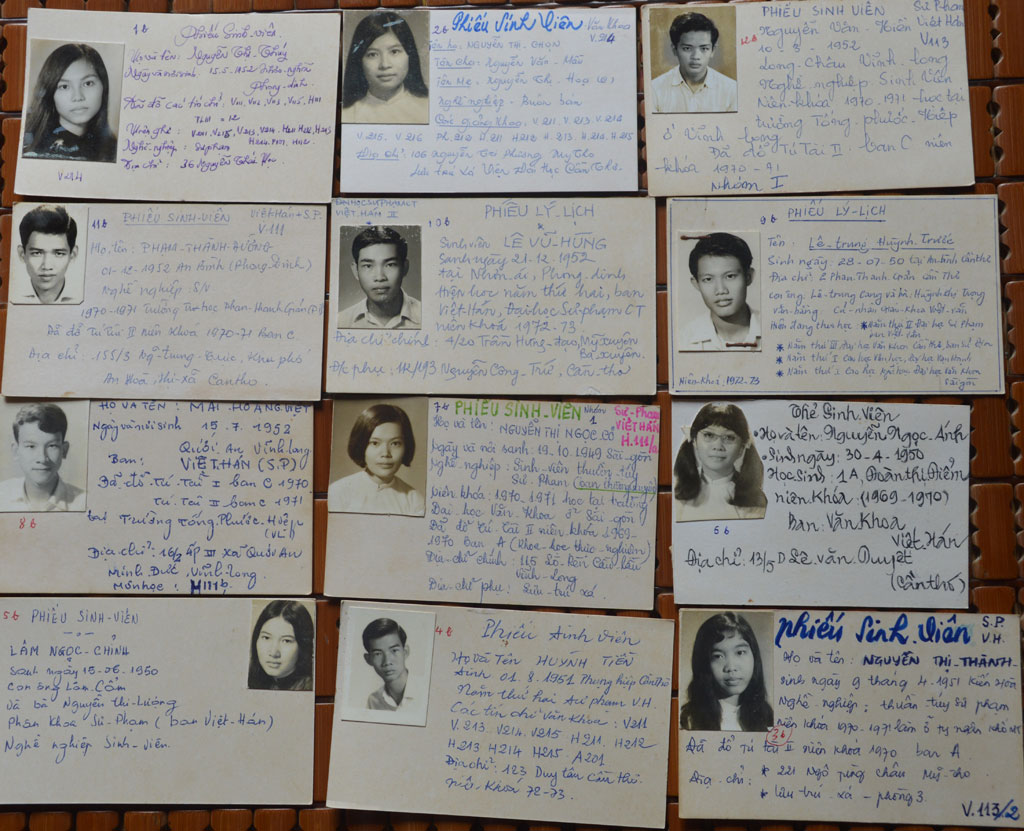 1b
Phiếu Sinh viên
Họ và tên: Nguyễn Thị Thủy
Ngày và nơi sinh 15.5.1952
Phong-dinh
Nghề nghiệp:
Địa chỉ: 36 Nguyễn Thái Học
V214
2b
Phiếu Sinh Viên Văn Khoa
V.214
Tên họ: NGUYỄN THỊ CHỌN
Tên Cha: Nguyễn Văn
Tên Mẹ: Nguyễn Thị
Nghề nghiệp: Buôn bán
V.211, V.213, V.214
V.215. V.216 H.211 H.212 H.213 H.214 H.215
Địa chỉ: 106 Nguyễn Tri Phương Mỹ Tho
Lưu trú xá Viện Đại Học Cần Thơ
12b
PHIẾU SINH VIÊN Sư Phạm
Nguyễn Văn Hiền Việt Hán
10.8.1952 V113
Long Châu Vĩnh Long
Nghề nghiệp: Sinh Viên
Niên khóa 1970-1971 học tại
trường Tống phước Hiệp
ở Vĩnh long
Đã đổ Tú Tài II ban C niên
khóa 1970-71
Nhóm I
11b
PHIẾU SINH-VIÊN Việt Hán + S.P.
V-111
Họ tên: PHẠM-THÀNH-DƯƠNG
01-12-1952 An Bình (Phong Dinh)
Nghề nghiệp: S/V
1970-1971 Trường Trung học Phan-Thanh Giản
Đã đổ tú tài II niên Khoá 1970-71 Ban C.
Địa chỉ: 155/3 Ng-Trung-Trực, Khu phố
An Hoà, Thị-xã Cantho.
BAN HỌC SƯ PHẠM CT
VIỆT. HÁN II
10b
PHIẾU LÝ-LỊCH
Sinh viên LÊ VŨ-HÙNG
Sanh ngày 21.12.1952
tại Nhơn.ái, Phong.dinh
Hiện học năm thứ hai, ban
Việt-Hán, Đại học Sư phạm CT
niên khoá 1972-73.
Địa chỉ chính: 4/20 Trần Hưng-đạo, Mỹ xuyên
Ba xuyên.
Đ/c phụ: 112/193 Nguyễn Công-Trứ, Cần-thơ
9b
PHIẾU LÝ-LỊCH
Tên: Lê-trung Huỳnh Trước
Sinh ngày: 28-07-50 tại An Bình Cần thơ
Địa chỉ: 2 Phan Thanh Giản Cần Thơ
con ông: Lê-trung Cang và bà: Huỳnh thị Tượng
văn bằng: Cử-nhân Văn-Khoa Việt-văn
Hiện đang theo học: * Năm thứ II Đại học Sư Phạm
ban Việt Hán
* Năm thứ III, Đại học Văn Khoa Cần thơ, ban Sử Địa
* Năm thứ I Cao học Văn học, Đại học Vạn Hạnh
* Năm thứ I Cao học Văn học, Đại học Văn Khoa
Sài gòn
Niên-Khoá: 1972-73
8b
HỌ VÀ TÊN: MAI-HOÀNG VIỆT
Ngày và nơi sinh 15.7.1952
Quới An Vĩnh-long
Ban: VIỆT HÁN (S.P)
Đã đỗ tú.Tài I ban C 1970
tú.Tài II ban C 1971
tại Trường Tống Phước Hiệp
(VL)
Địa chỉ: 16/3 ấp III xã Quới An
Minh Đức, Vĩnh-Long.
Môn học: H111a
7b
PHIẾU SINH-VIÊN Nhóm 1 Sư-Phạm
VIỆT HÁN
H.111/a
Họ và tên: NGUYỄN THỊ NGỌC CỔ
Ngày và nơi sanh: 19.10.1949 Sài-gòn
Nghề nghiệp: Sinh-viên thuần-túy
Sư-Phạm
Niên khóa: 1970-1971 học tại trường
Đại học Văn-Khoa ở Sài gòn
Đã đổ tú tài II niên khóa 1969-
1970 Ban A (Khoa học thực-nghiệm)
Địa-chỉ chính: 115 Lô-Rèn Cầu Lầu
Vĩnh-Long
Địa-chỉ phụ: Lưu-trú xá
5b
Thẻ Sinh Viên
Họ và tên: Nguyễn Ngọc-Ánh
Sinh ngày: 30-4-1950
Học Sinh: 1A, Đoàn thị Điểm
niên Khóa (1969-1970)
Ban: Văn Khoa
Việt Hán
Địa chỉ: 13/5 D Lê văn Duyệt
(Cần thơ)
5b
PHIẾU SINH-VIÊN
LÂM NGỌC-CHỈNH
Sanh ngày 15-06-1950
con ông Lâm Cẩm
và bà Nguyễn thị-Lường
Phân Khoa Sư-Phạm (ban Việt-Hán)
Nghề nghiệp Sinh-viên.
4b
Phiếu sinh viên
Họ và Tên HUỲNH TIỀN
Sinh 01.8.1951 Phụng hiệp Cần thơ
Năm thứ hai Sư phạm V.H.
Các tín chỉ văn Khoa: V211
V.213. V214. V215 H.211. H212
H213 H214 H215 A201
Địa chỉ: 123 Duy tân Cần thơ.
niên Khoá 72-73.
Phiếu Sinh Viên S.P.
V.H.
Họ và tên: NGUYỄN THỊ-THÀNH
sinh ngày 9 tháng 4-1951 Kiến Hòa
Nghề nghiệp: thuần túy sư phạm
3b
niên khóa 1970-1971
Đã đổ tú tài II niên khoá 1970 ban A
Địa chỉ: * 221 Ngô tùng châu Mỹ-tho
* lưu trú xá - phòng 3.
V.113/2